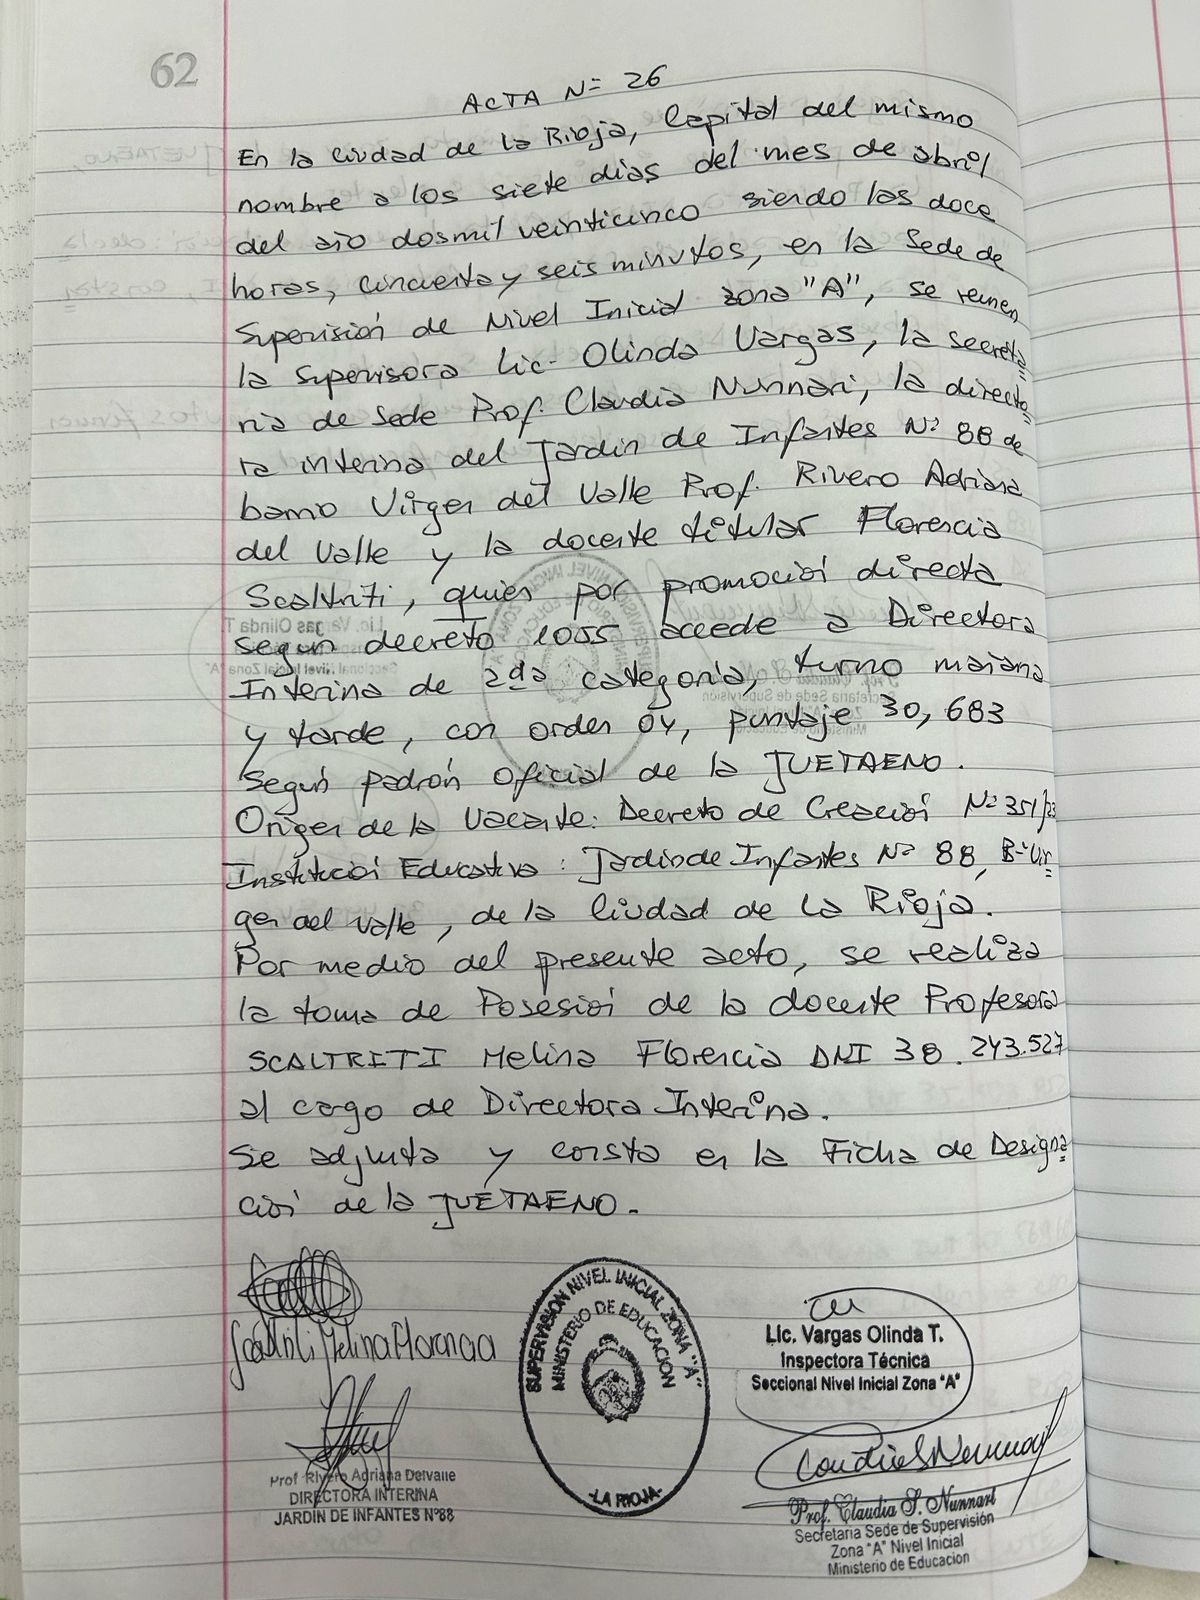 62
ACTA Nº 26
En la Ciudad de la Rioja, Capital del mismo
nombre a los siete días del mes de abril
del año dosmil veinticinco siendo las doce
horas, cincuenta y seis minutos, en la Sede de
Supervisión de Nivel Inicial zona "A", se reunen
la Supervisora Lic. Olinda Vargas, la secreta=
ria de Sede Prof. Claudia Nunnari, la directo=
ra interina del Jardin de Infantes Nº 88 de
barrio Virgen del Valle Prof. Rivero Adriana
del Valle y la docente titular Florencia
Scaltriti, quien por promoción directa
según decreto 1055 accede a Directora
Interina de 2da categoria, turno mañana
y tarde, con orden 04, puntaje 30,683
según padrón oficial de la JUETAENO.
Origen de la Vacante: Decreto de Creación Nº 351/23
Institución Educativa: Jardin de Infantes Nº 88, Bº Vir=
gen del Valle, de la Ciudad de La Rioja.
Por medio del presente acto, se realiza
la toma de Posesión de la docente Profesora
SCALTRITI Melina Florencia DNI 38.243.527
al cargo de Directora Interina.
Se adjunta y consta en la Ficha de Designa=
ción de la JUETAENO.
Scaltriti Melina Florencia
Prof Rivero Adriana Delvalle
DIRECTORA INTERINA
JARDÍN DE INFANTES Nº88
SUPERVISION NIVEL INICIAL ZONA "A"
MINISTERIO DE EDUCACION
-LA RIOJA-
Lic. Vargas Olinda T.
Inspectora Técnica
Seccional Nivel Inicial Zona "A"
Prof. Claudia S. Nunnari
Secretaria Sede de Supervisión
Zona "A" Nivel Inicial
Ministerio de Educacion